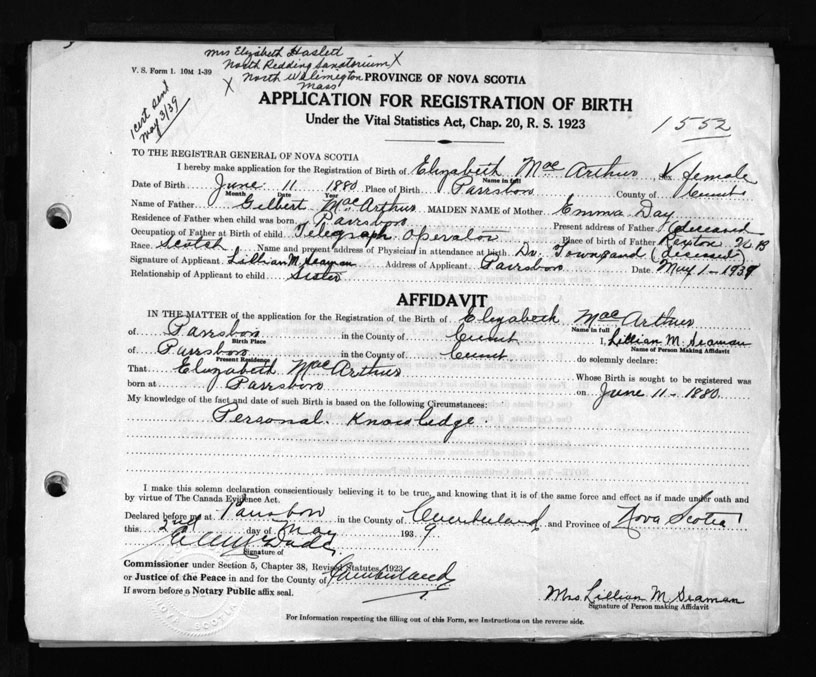 Mrs Elizabeth Haslett
V. S. Form 1. 10M 1-39
North Redding Sanatorium X
X North Wilmington
Mass
PROVINCE OF NOVA SCOTIA
APPLICATION FOR REGISTRATION OF BIRTH
Under the Vital Statistics Act, Chap. 20, R. S. 1923
1 cert sent
May 3/39
1552
TO THE REGISTRAR GENERAL OF NOVA SCOTIA
I hereby make application for the Registration of Birth of Elizabeth Mac Arthur female
Name in full
Date of Birth June 11 1880 Place of Birth Parrsboro County of Cumb
Month Date Year
Name of Father Gilbert MacArthur MAIDEN NAME of Mother Emma Day
Residence of Father when child was born Parrsboro Present address of Father (deceased
Occupation of Father at Birth of child Telegraph Operator Place of birth of Father Rexton N B
Race Scotch Name and present address of Physician in attendance at birth Dr. Townsand (deceased)
Signature of Applicant Lillian M. Seaman Address of Applicant Parrsboro Date May 1 - 1939
Relationship of Applicant to child Sister
AFFIDAVIT
IN THE MATTER of the application for the Registration of the Birth of Elizabeth Mac Arthur
Name in full
of Parrsboro in the County of Cumb I, Lillian M. Seaman
Birth Place Name of Person Making Affidavit
of Parrsboro in the County of Cumb do solemnly declare:
Present Residence
That Elizabeth MacArthur Whose Birth is sought to be registered was
born at Parrsboro on June 11 - 1880.
My knowledge of the fact and date of such Birth is based on the following Circumstances:
Personal Knowledge.
I make this solemn declaration conscientiously believing it to be true, and knowing that it is of the same force and effect as if made under oath and
by virtue of The Canada Evidence Act.
Declared before me at Parrsboro in the County of Cumberland and Province of Nova Scotia
this 2nd day of May 1939
Signature of
Commissioner under Section 5, Chapter 38, Revised Statutes, 1923
or Justice of the Peace in and for the County of Cumberland
If sworn before a Notary Public affix seal.
Mrs. Lillian M. Seaman
Signature of Person making Affidavit
For Information respecting the filling out of this Form, see Instructions on the reverse side.